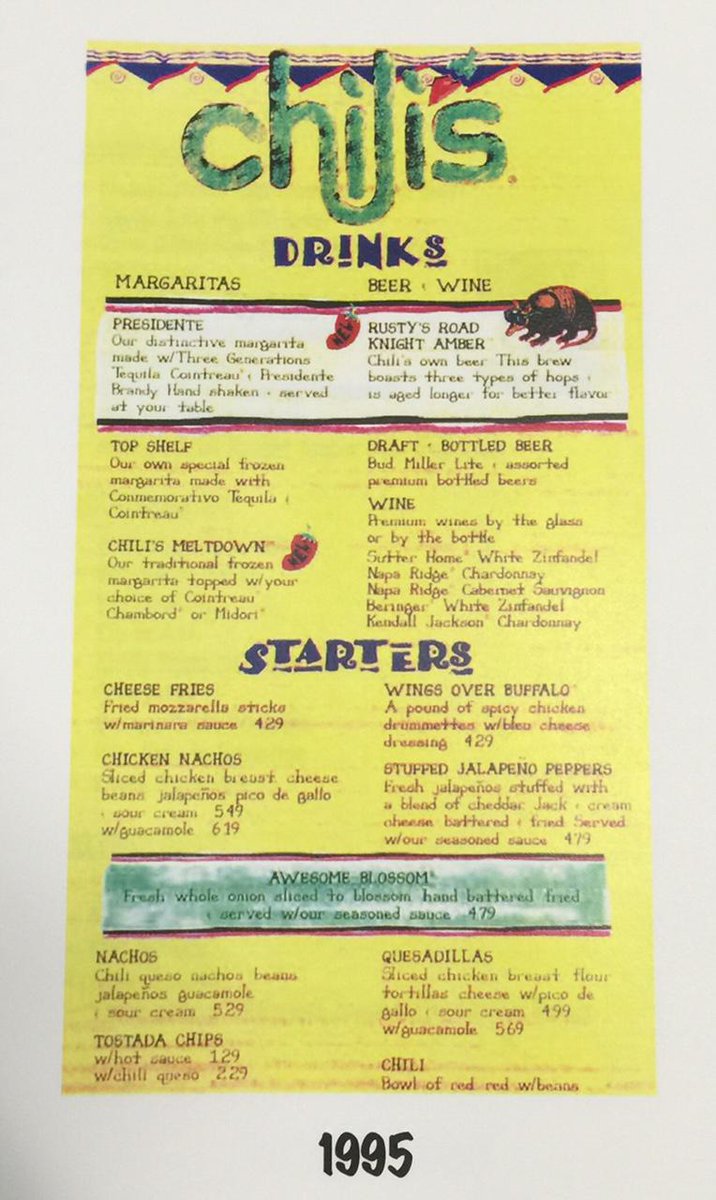 chili's
DRINKS
MARGARITAS
PRESIDENTE
Our distinctive margarita
made w/Three Generations
Tequila Cointreau® & Presidente
Brandy Hand shaken & served
at your table
NEW
TOP SHELF
Our own special frozen
margarita made with
Conmemorativo Tequila &
Cointreau®
CHILI'S MELTDOWN™
Our traditional frozen
margarita topped w/your
choice of Cointreau®
Chambord® or Midori®
NEW
BEER & WINE
RUSTY'S ROAD
KNIGHT AMBER™
Chili's own beer This brew
boasts three types of hops &
is aged longer for better flavor
DRAFT & BOTTLED BEER
Bud Miller Lite & assorted
premium bottled beers
WINE
Premium wines by the glass
or by the bottle
Sutter Home® White Zinfandel
Napa Ridge® Chardonnay
Napa Ridge® Cabernet Sauvignon
Beringer® White Zinfandel
Kendall Jackson® Chardonnay
STARTERS
CHEESE FRIES
Fried mozzarella sticks
w/marinara sauce 4.29
CHICKEN NACHOS
Sliced chicken breast cheese
beans jalapeños pico de gallo
& sour cream 5.49
w/guacamole 6.19
WINGS OVER BUFFALO®
A pound of spicy chicken
drummettes w/bleu cheese
dressing 4.29
STUFFED JALAPEÑO PEPPERS
Fresh jalapeños stuffed with
a blend of cheddar Jack & cream
cheese battered & fried Served
w/our seasoned sauce 4.79
AWESOME BLOSSOM®
Fresh whole onion sliced to blossom hand battered fried
& served w/our seasoned sauce 4.79
NACHOS
Chili queso nachos beans
jalapeños guacamole
& sour cream 5.29
TOSTADA CHIPS
w/hot sauce 1.29
w/chili queso 2.29
QUESADILLAS
Sliced chicken breast flour
tortillas cheese w/pico de
gallo & sour cream 4.99
w/guacamole 5.69
CHILI
Bowl of red red w/beans
1995